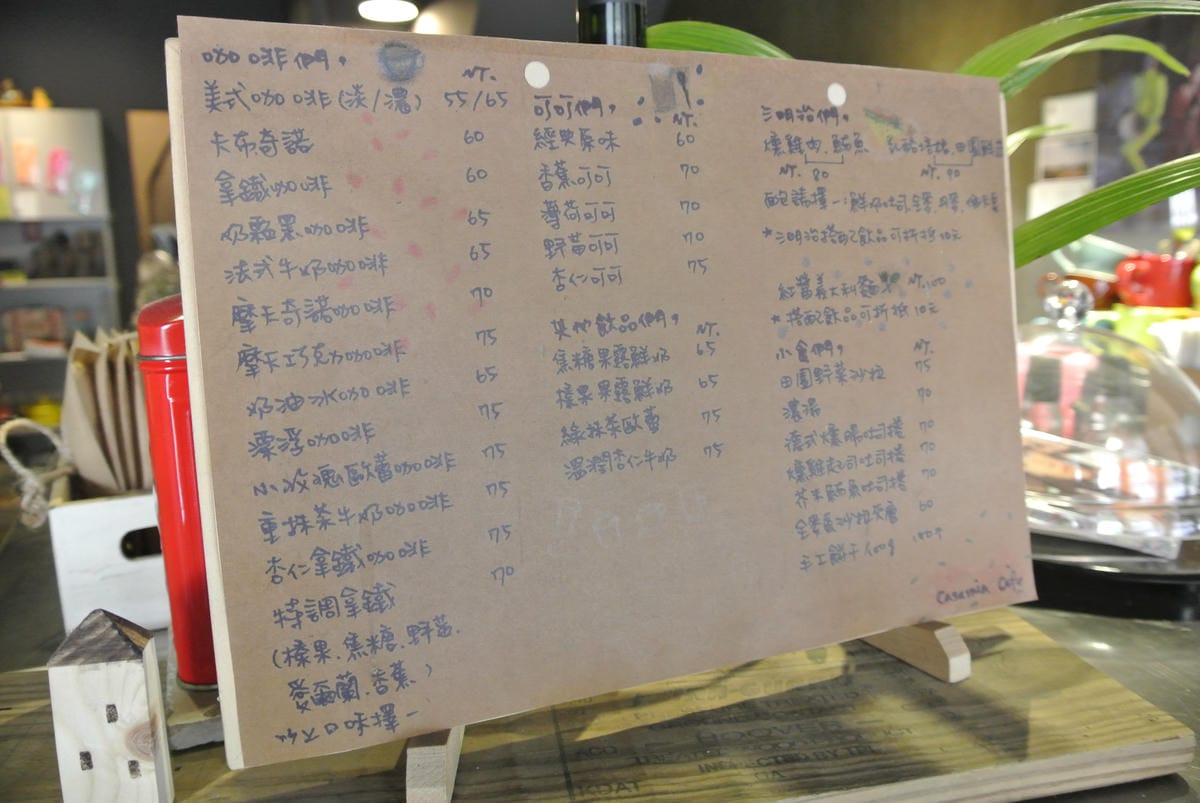 咖啡們,
NT.
美式咖啡(淡/濃) 55/65
卡布奇諾 60
拿鐵咖啡 60
奶黑咖啡 65
法式牛奶咖啡 65
摩卡奇諾咖啡 70
摩卡巧克力咖啡 75
奶油冰咖啡 65
漂浮咖啡 75
小玫瑰歐蕾咖啡 75
重抹茶牛奶咖啡 75
杏仁拿鐵咖啡 75
特調拿鐵 70
(榛果.焦糖.野莓.
愛爾蘭.香蕉)
以上口味擇一
可可們,
NT.
經典原味 60
香蕉可可 70
薄荷可可 70
野莓可可 70
杏仁可可 75
其他飲品們,
NT.
焦糖果露鮮奶 65
榛果果露鮮奶 65
綠抹茶歐蕾 75
溫潤杏仁牛奶 75
三明治們,
燻雞肉.鮪魚 田園鮮蔬
NT. 80 NT. 90
請擇一:鮮奶吐司
*三明治搭配飲品可折抵10元
紅醬義大利麵 NT.100
*搭配飲品可折抵10元
小食們,
NT.
田園野菜沙拉 75
濃湯 70
德式燻腸吐司捲 70
燻雞起司吐司捲 70
芥末鮪魚吐司捲 70
全麥沙拉 60
手工餅干100g 100
Casamia Café
KDAT